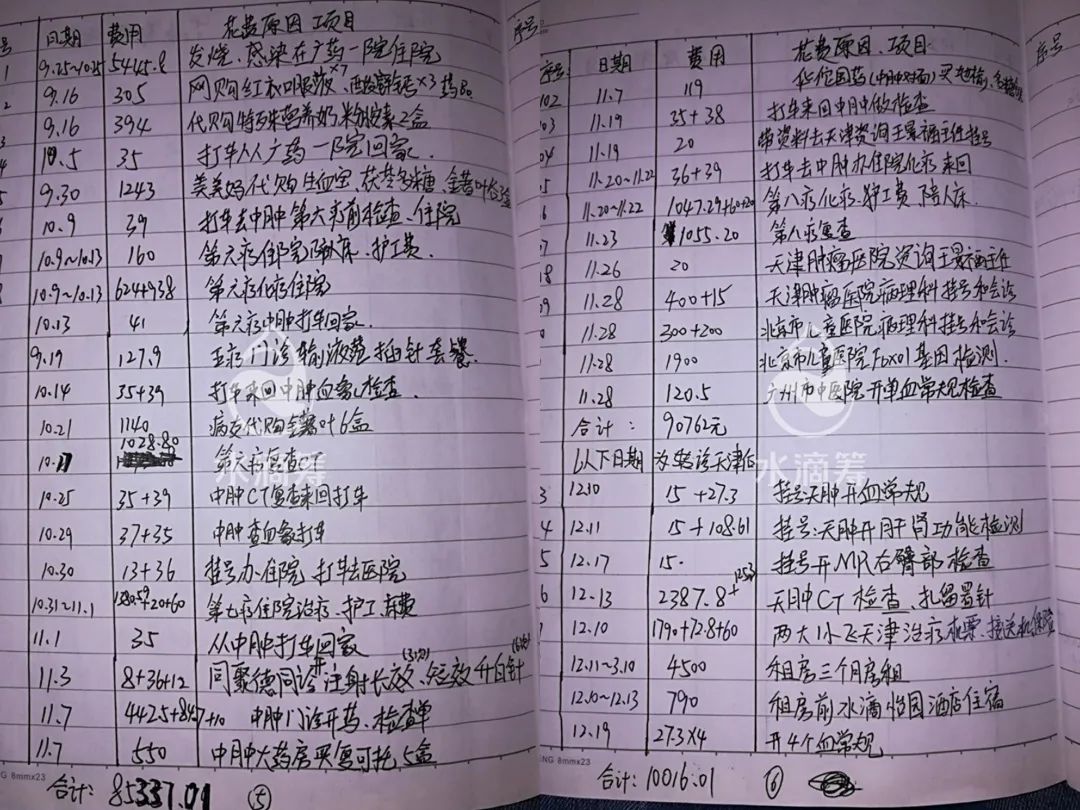 号 日期 费用 花费原因 项目
1 9.25~10.5 5445.8 发烧、感染在广药一院住院
2 9.16 305 网购红衣口服液×7、醋酸锌钙×3药品
3 9.16 394 代购特殊营养奶粉2盒
4 10.5 35 打车从广药一院回家.
5 9.30 1243 美美妈代购生血宝、茯苓多糖、金薯叶
10.9 39 打车去中肿第六疗前检查、住院
10.9~10.13 160 第六疗住院陪床、护工费
10.9~10.13 624+938 第六疗化疗住院
10.13 41 第六疗中肿打车回家.
9.19 127.9 五疗门诊输液港插针套餐.
10.14 35+39 打车来回中肿血象检查
10.21 1140 病友代购金薯叶6盒
10.17 1028.80 第六疗复查CT
10.25 35+39 中肿CT复查来回打车
10.29 37+35 中肿查血象打车
10.30 13+36 挂号办住院 打车去医院
10.31~11.1 +20+60 第七疗住院治疗、护工
11.1 35 从中肿打车回家
11.3 8+36+12 同聚德同诊 注射长效、短效升白针
11.7 442.5+847+10 中肿门诊开药、检查单
11.7 550 中肿大药房买复可托5盒
合计: 85337.01 ⑤
NG 8mmx23
序号
序号 日期 费用 花费原因、项目
102 11.7 119 华佗国药(中肿对面)买
03 11.19 35+38 打车来回中肿做检查
04 11.19 20 带资料去天津资询王景福主任挂号
05 11.20~11.22 36+39 打车去中肿办住院化疗来回
6 11.20~11.22 1047.29+60+20 第八疗化疗、护工费、陪人床.
7 11.23 1055.20 第八疗复查
18 11.26 20 天津肿瘤医院资询王景福主任
09 11.28 400+15 天津肿瘤医院病理科挂号和会诊
11.28 300+200 北京市儿童医院病理科挂号和会诊
11.28 1900 北京市儿童医院Foxo1基因检测.
11.28 120.5 广州市中医院开单血常规检查
合计: 90762元
以下日期 为转诊天津后
3 12.10 15+27.3 挂号天肿开血常规
4 12.11 15+108.61 挂号:天肿开肝肾功能检测
5 12.17 15. 挂号开MR右臀部检查
6 12.13 2387.8+125.3 天肿CT检查、扎留置针
12.10 1790+72.8+60 两大1小飞天津治疗机票、接送机保险
12.11~3.10 4500 租房三个月房租
12.10~12.13 790 租房前水滴怡园酒店住宿
12.19 27.3×4 开4个血常规
合计: 10016.01 ⑥
ENG 8mmx23
序号
水滴筹
水滴筹